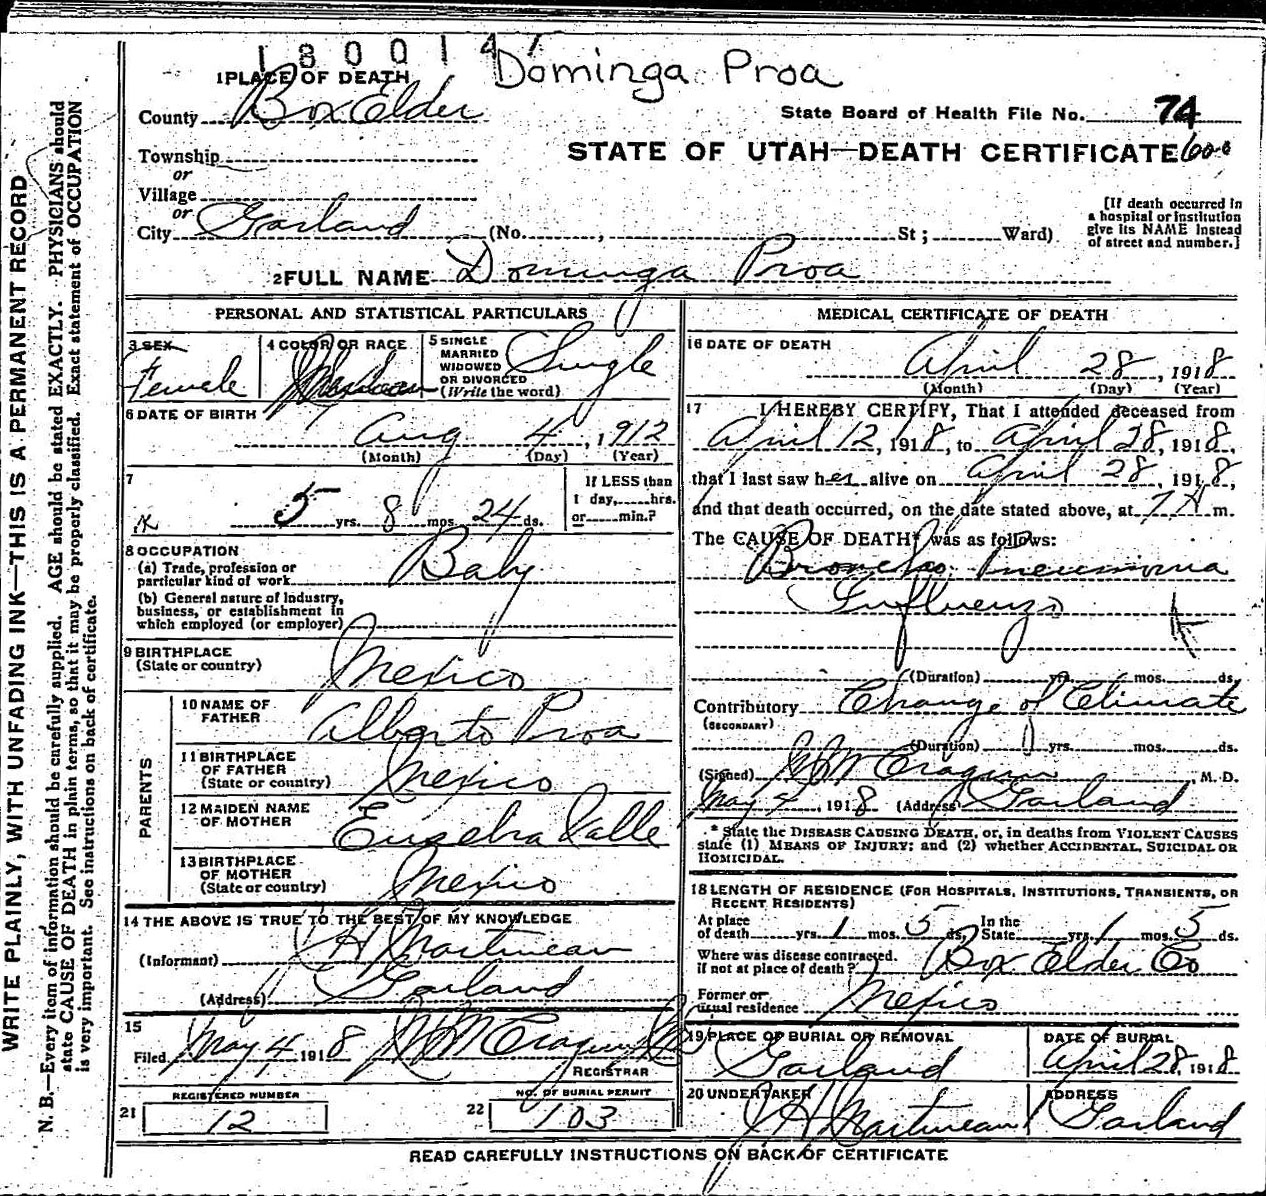 1 8 0 0 1 4 7 Dominga Proa
1 PLACE OF DEATH
County Box Elder
State Board of Health File No. 74
Township
STATE OF UTAH—DEATH CERTIFICATE 600
or
Village
or
City Garland (No. , St ; Ward)
[If death occurred in a hospital or institution give its NAME instead of street and number.]
2 FULL NAME Dominga Proa
PERSONAL AND STATISTICAL PARTICULARS
3 SEX Female
4 COLOR OR RACE Mexican
5 SINGLE MARRIED WIDOWED OR DIVORCED (Write the word) Single
6 DATE OF BIRTH Aug 4, 1912
(Month) (Day) (Year)
7 5 yrs. 8 mos. 24 ds.
If LESS than 1 day, hrs. or min.?
8 OCCUPATION
(a) Trade, profession or particular kind of work Baby
(b) General nature of industry, business, or establishment in which employed (or employer)
9 BIRTHPLACE (State or country) Mexico
PARENTS
10 NAME OF FATHER Alberto Proa
11 BIRTHPLACE OF FATHER (State or country) Mexico
12 MAIDEN NAME OF MOTHER Eusebia Valle
13 BIRTHPLACE OF MOTHER (State or country) Mexico
14 THE ABOVE IS TRUE TO THE BEST OF MY KNOWLEDGE
(Informant) J H Martineau
(Address) Garland
15
Filed May 4 1918
REGISTRAR
REGISTERED NUMBER
21 12
NO. OF BURIAL PERMIT
22 103
MEDICAL CERTIFICATE OF DEATH
16 DATE OF DEATH April 28, 1918
(Month) (Day) (Year)
17 I HEREBY CERTIFY, That I attended deceased from
April 12, 1918, to April 28, 1918,
that I last saw her alive on April 28, 1918,
and that death occurred, on the date stated above, at 7 A m.
The CAUSE OF DEATH* was as follows:
Broncho Pneumonia
Influenza
(Duration) yrs. mos. ds.
Contributory Change of Climate
(SECONDARY)
(Duration) yrs. mos. ds.
(Signed) M. D.
May, 1918 (Address) Garland
* State the DISEASE CAUSING DEATH, or, in deaths from VIOLENT CAUSES
state (1) MEANS OF INJURY; and (2) whether ACCIDENTAL, SUICIDAL OR
HOMICIDAL.
18 LENGTH OF RESIDENCE (FOR HOSPITALS, INSTITUTIONS, TRANSIENTS, OR
RECENT RESIDENTS)
At place of death yrs. 1 mos. 5 ds. In the State yrs. 1 mos. 5 ds.
Where was disease contracted, if not at place of death? Box Elder Co
Former or usual residence Mexico
19 PLACE OF BURIAL OR REMOVAL Garland
DATE OF BURIAL April 28, 1918
20 UNDERTAKER J H Martineau
ADDRESS Garland
READ CAREFULLY INSTRUCTIONS ON BACK OF CERTIFICATE
WRITE PLAINLY, WITH UNFADING INK—THIS IS A PERMANENT RECORD
N. B.—Every item of information should be carefully supplied. AGE should be stated EXACTLY. PHYSICIANS should
state CAUSE OF DEATH in plain terms, so that it may be properly classified. Exact statement of OCCUPATION
is very important. See instructions on back of certificate.